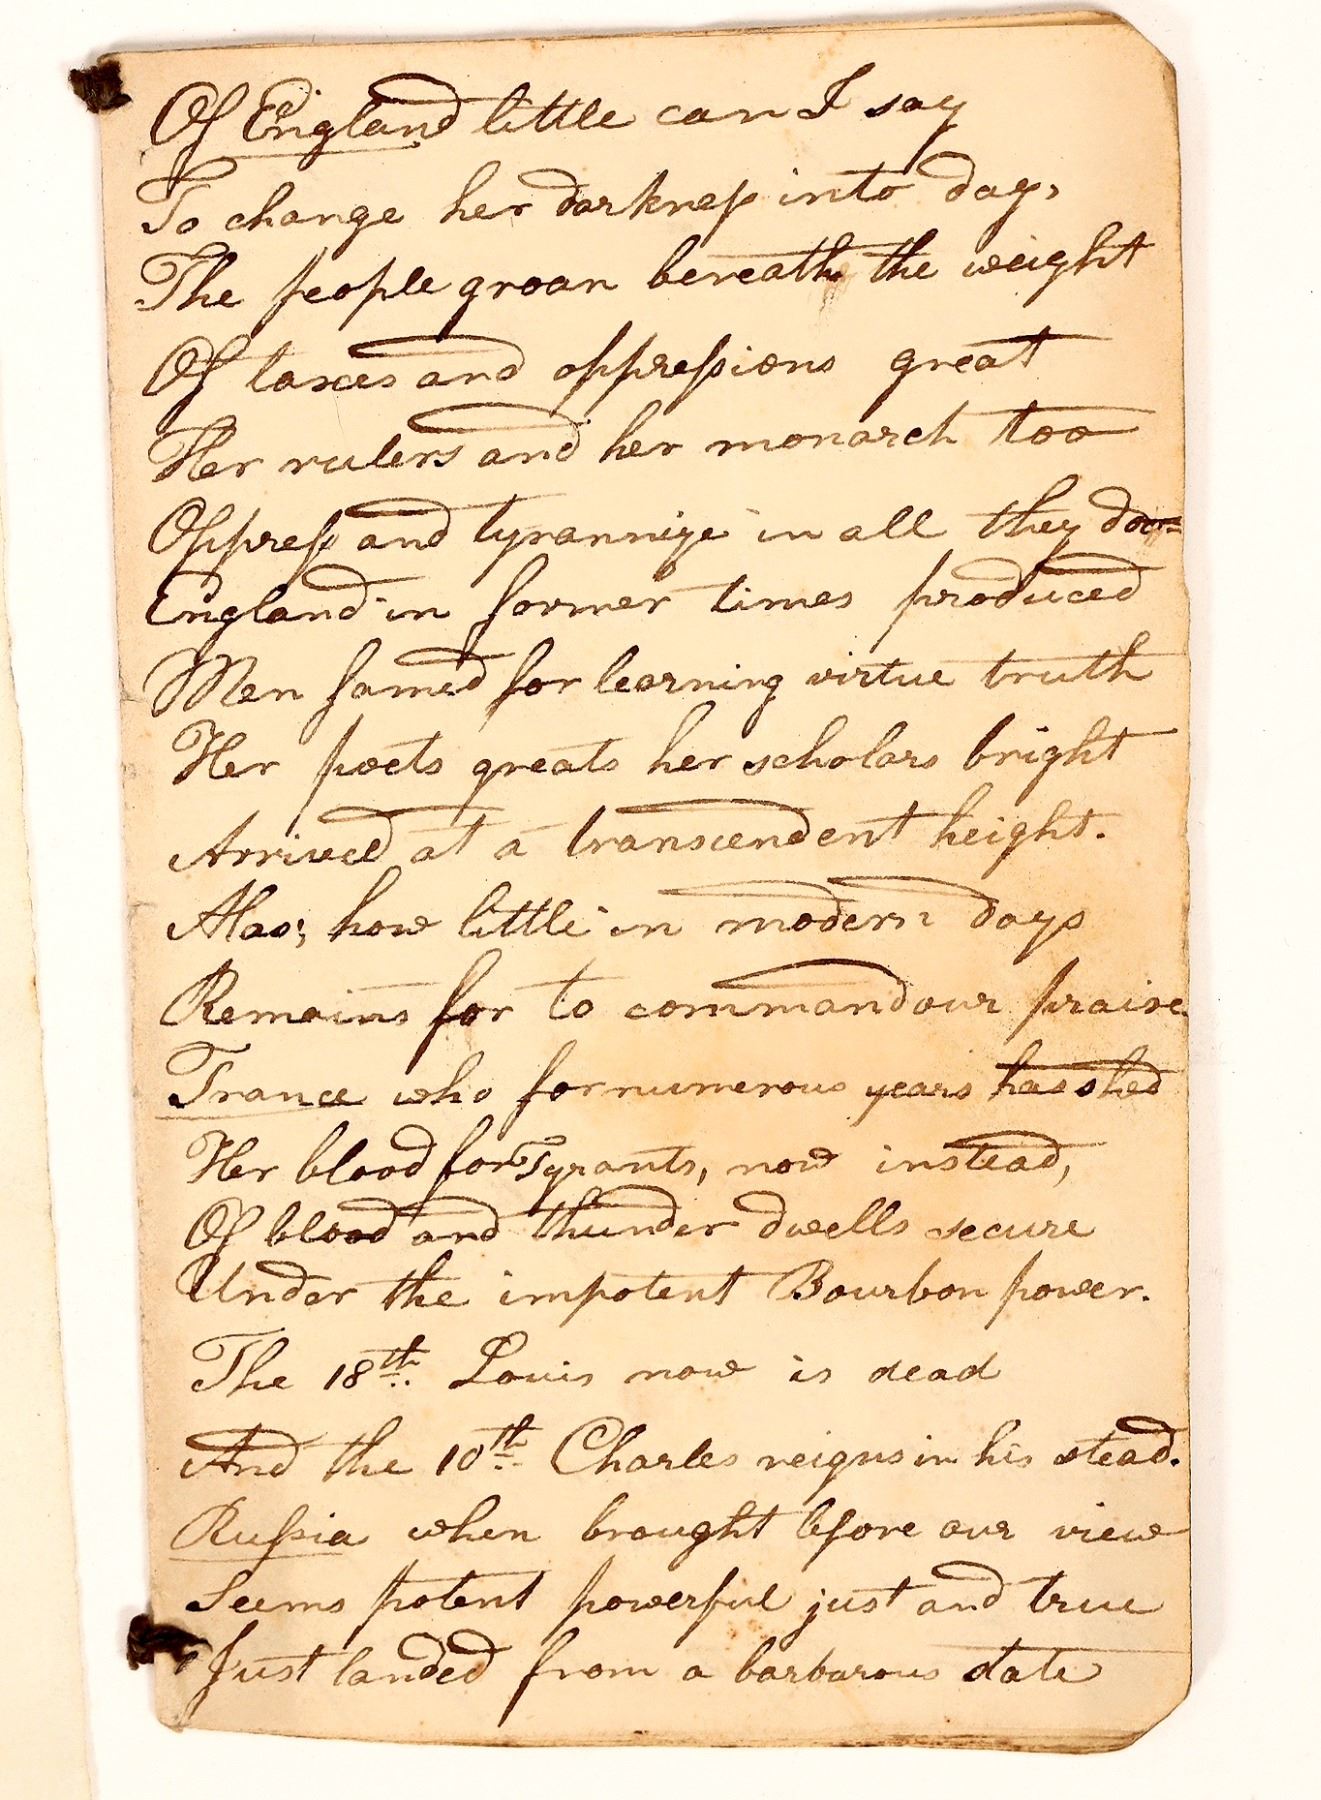 Of England little can I say
To change her darkneſs into day,
The people groan beneath the weight
Of taxes and oppreſsions great
Her rulers and her monarch too
Oppreſs and tyrannize in all they doo=
England in former times produced
Men famed for learning virtue truth
Her poets greats her scholars bright
Arrived at a transcendent height.
Alas; how little in modern days
Remains for to command our praise.
France who for numerous years has shed
Her blood for Tyrants, now instead,
Of blood and thunder dwells secure
Under the impotent Bourbon power.
The 18th. Louis now is dead
And the 10th. Charles reigns in his stead.
Ruſsia when brought before our view
Seems potent powerful just and true
Just landed from a barbarous state